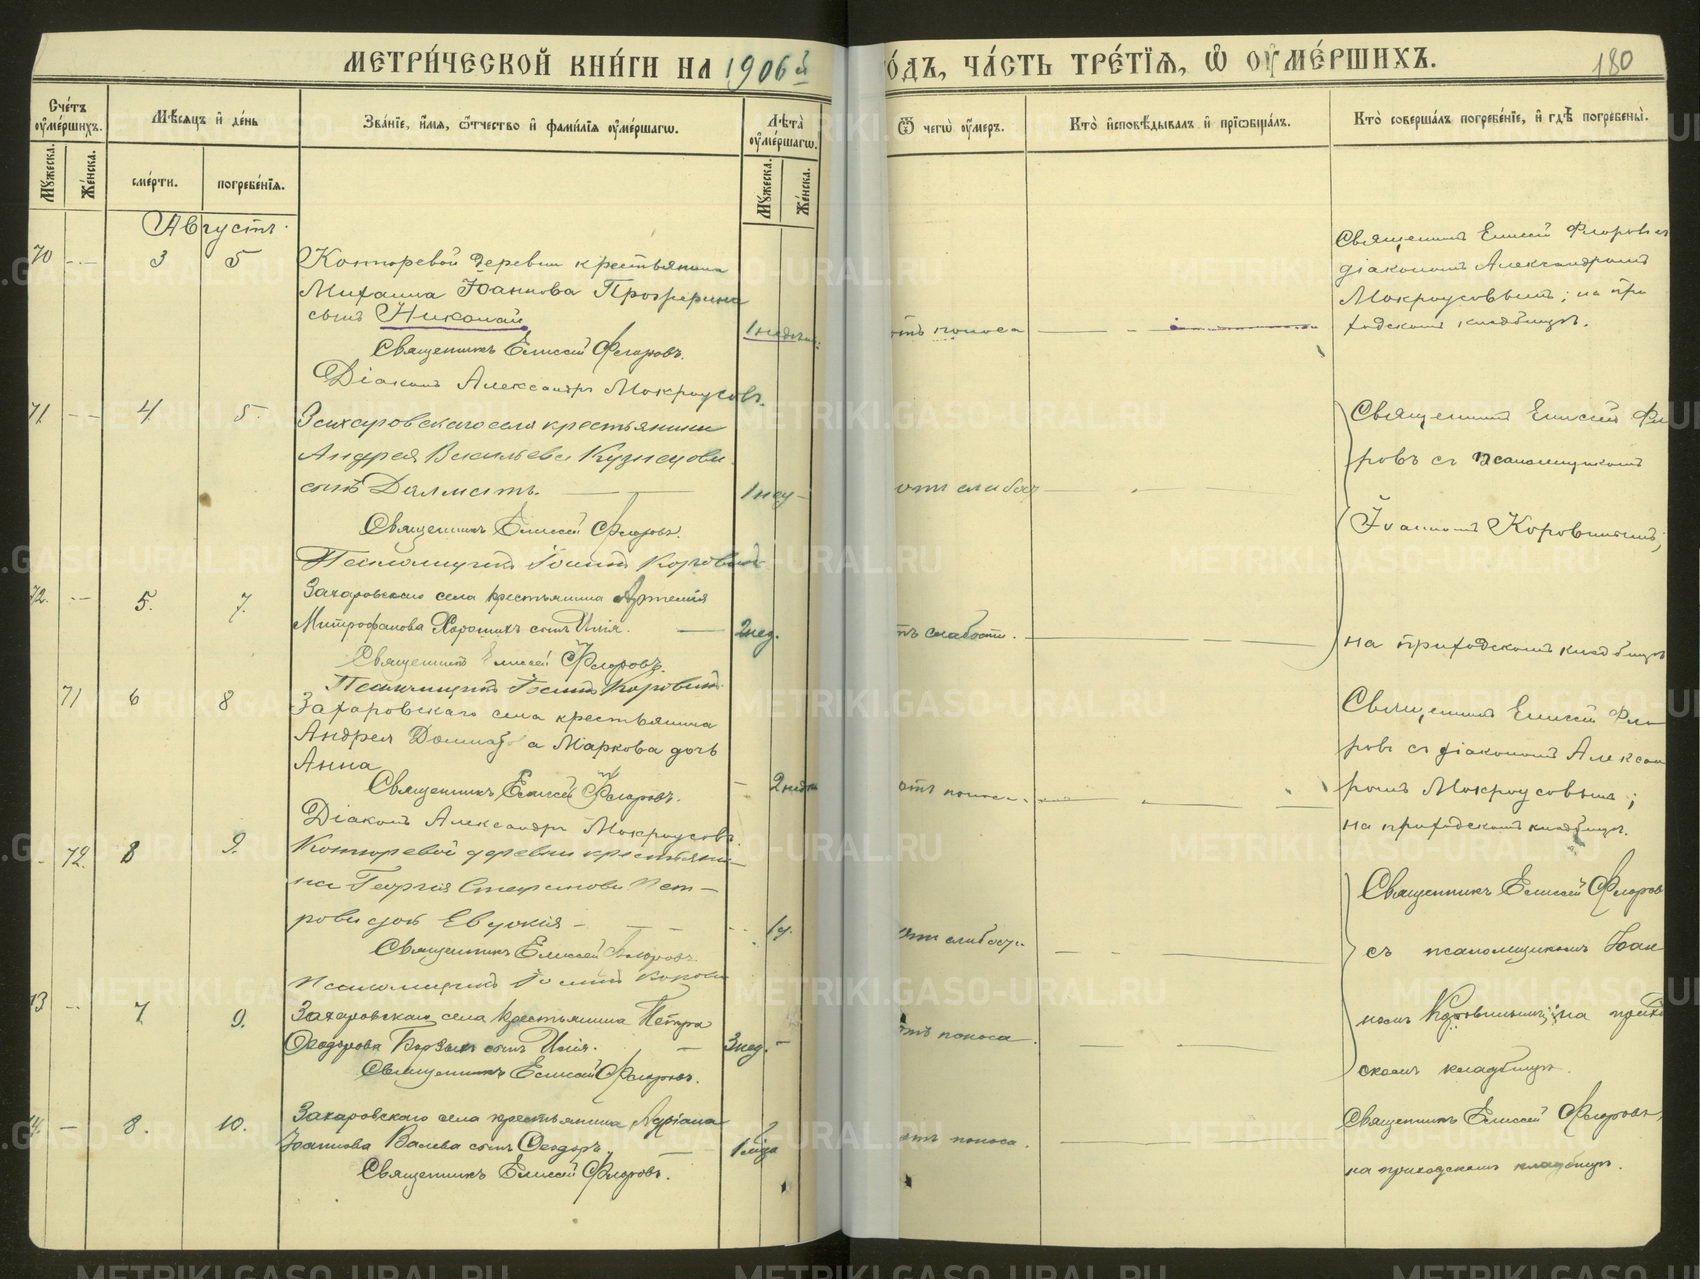 МЕТРИ́ЧЕСКОЙ КНИ́ГИ НА 1906й
О́ДЪ, ЧА́СТЬ ТРЕ́ТЇѦ, Ѿ ОУМЕ́РШИХЪ.
180
Сче́тъ оуме́ршихъ.
Мꙋжеска.
Же́нска.
Мѣ́сяцъ и де́нь
сме́рти.
погребе́нїя.
Зва́нїе, и́мя, ѻ́тчество и фами́лїя оуме́ршагѡ.
Лѣта̀ оуме́ршагѡ.
Мꙋжеска.
Же́нска.
Ѿ чегѡ̀ оу́меръ.
Кто̀ исповѣ́дывалъ и прїѡбща́лъ.
Кто̀ соверша́лъ погребе́нїе, и гдѣ̀ погребены̀.
Августъ.
70 3 5
деревни крестьянина
Михаила Іоаннова
сынъ Николай
Священникъ Елисей Флоровъ.
Діаконъ Александръ Мокроусовъ.
отъ поноса
Священникъ Елисей Флоровъ съ
діакономъ Александромъ
Мокроусовымъ; на при
ходскомъ кладбищѣ.
71. 4 5.
Захаровскаго села крестьянина
Андрея Васильева Кузнецова
сынъ Далматъ.
1 нед
Священникъ Елисей Флоровъ.
Псаломщикъ Іоаннъ Коровинъ
отъ слабос
Священникъ Елисей Фло
ровъ съ псаломщикомъ
Іоанномъ Коровинымъ;
на приходскомъ кладбищѣ
72. 5. 7.
Захаровскаго села крестьянина Артемія
Митрофанова сынъ Илія.
2 нед.
Священникъ Елисей Флоровъ.
Псаломщикъ Іоаннъ Коровинъ.
тъ слабости.
71 6 8
Захаровскаго села крестьянина
Андрея Маркова дочь
Анна
Священникъ Елисей Флоровъ.
Діаконъ Александръ Мокроусовъ.
отъ поноса.
Священникъ Елисей Фло
ровъ съ діакономъ Алексан
ромъ Мокроусовымъ;
на приходскомъ кладбищѣ.
72. 8 9.
деревни крестьяни-
на Георгія Стефанова Пет-
рова дочь Евдокія
1 г.
Священникъ Елисей Флоровъ.
Псаломщикъ Іоаннъ Корови
слабости
Священникъ Елисей Флоровъ
съ псаломщикомъ Іоан
номъ Коровинымъ; на прихо
скомъ кладбищѣ.
73 7. 9.
Захаровскаго села крестьянина Петра
Ѳеодорова сынъ Илія.
3 нед.
Священникъ Елисей Флоровъ.
отъ поноса.
74. 8. 10.
Захаровскаго села крестьянина Адріана
Іоаннова Валева сынъ Ѳеодоръ
1 мѣс
Священникъ Елисей Флоровъ.
отъ поноса.
Священникъ Елисей Флоровъ,
на приходскомъ кладбищѣ.
METRIKI.GASO-URAL.RU